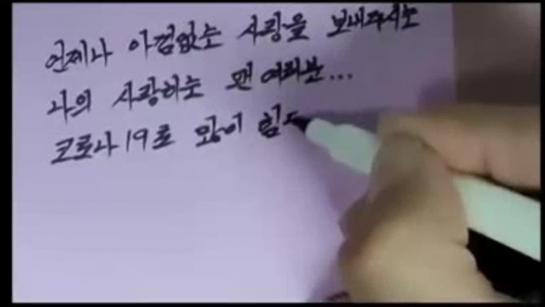 언제나 아낌없는 사랑을 보내주시는
나의 사랑하는 팬 여러분...
코로나19로 많이 힘